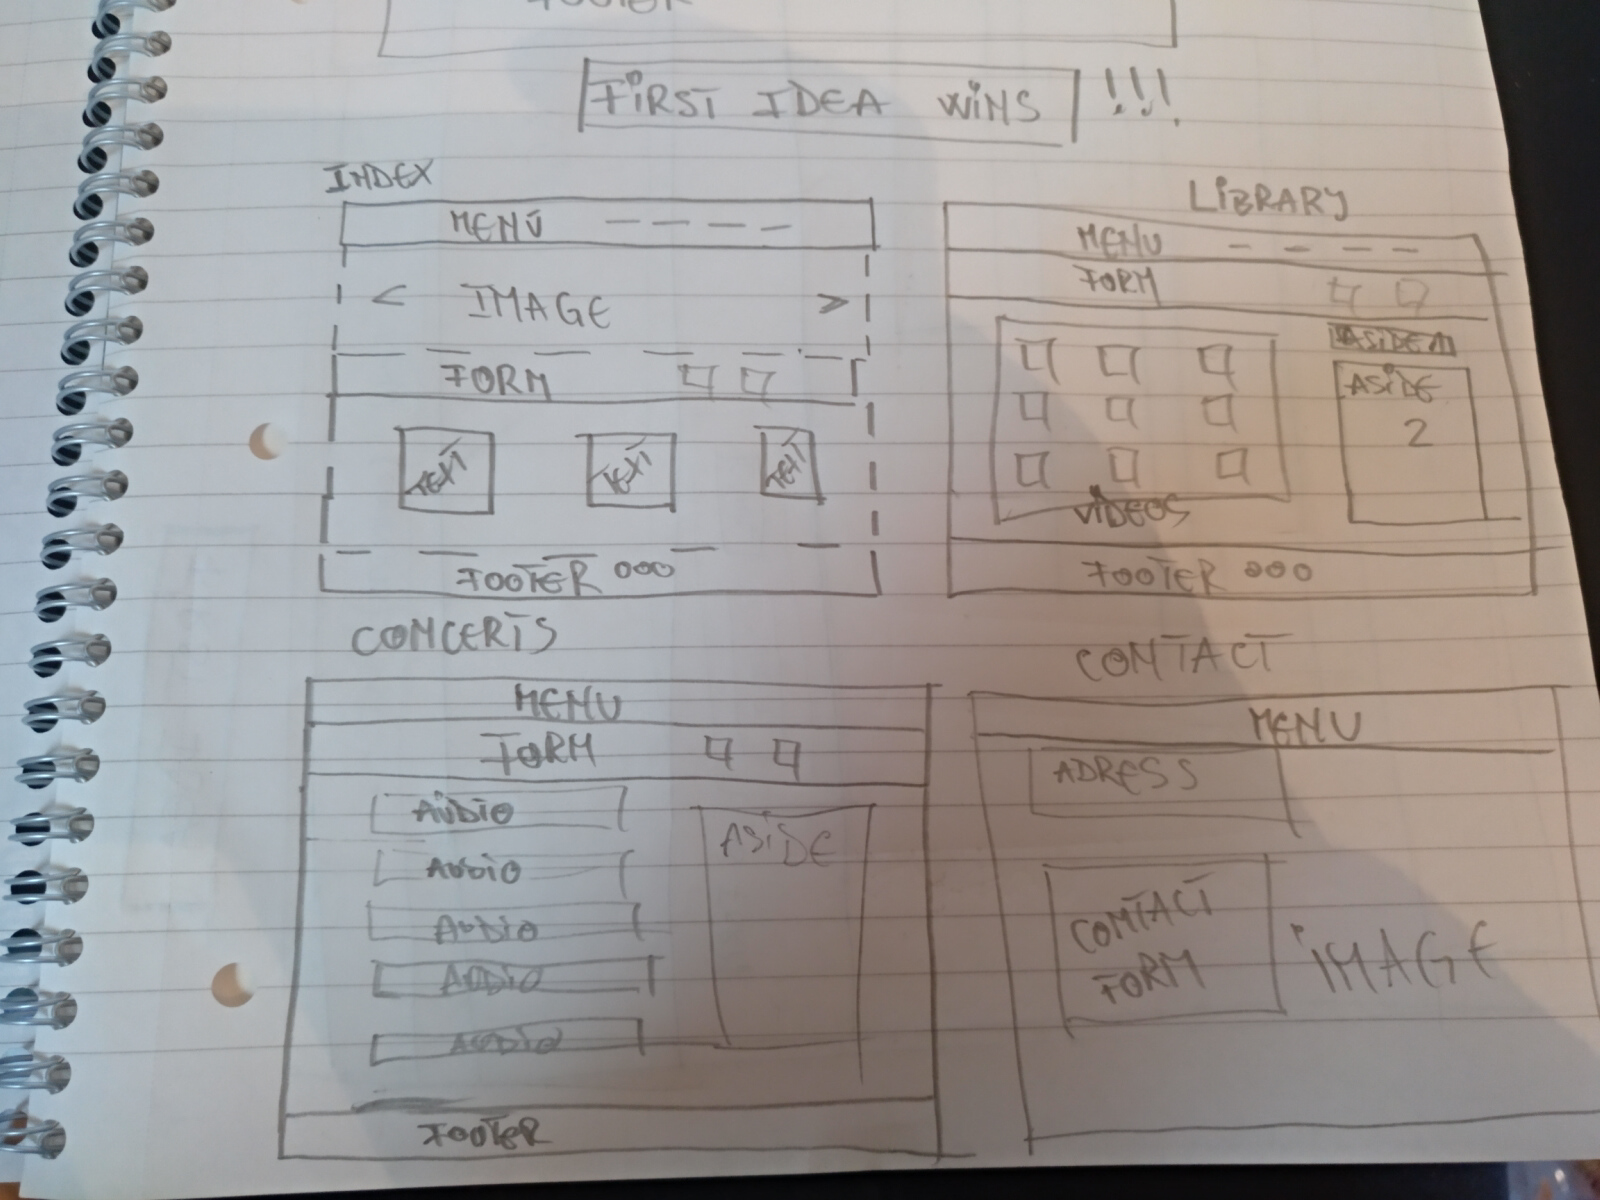 FOOTER
FIRST IDEA WINS !!!
INDEX
MENU
< IMAGE >
FORM
TEXT TEXT TEXT
FOOTER
LIBRARY
MENU
FORM
ASIDE
ASIDE
2
VIDEOS
FOOTER
CONCERTS
MENU
FORM
AUDIO
AUDIO
AUDIO
AUDIO
AUDIO
ASIDE
FOOTER
CONTACT
MENU
ADRESS
CONTACT
FORM
IMAGE